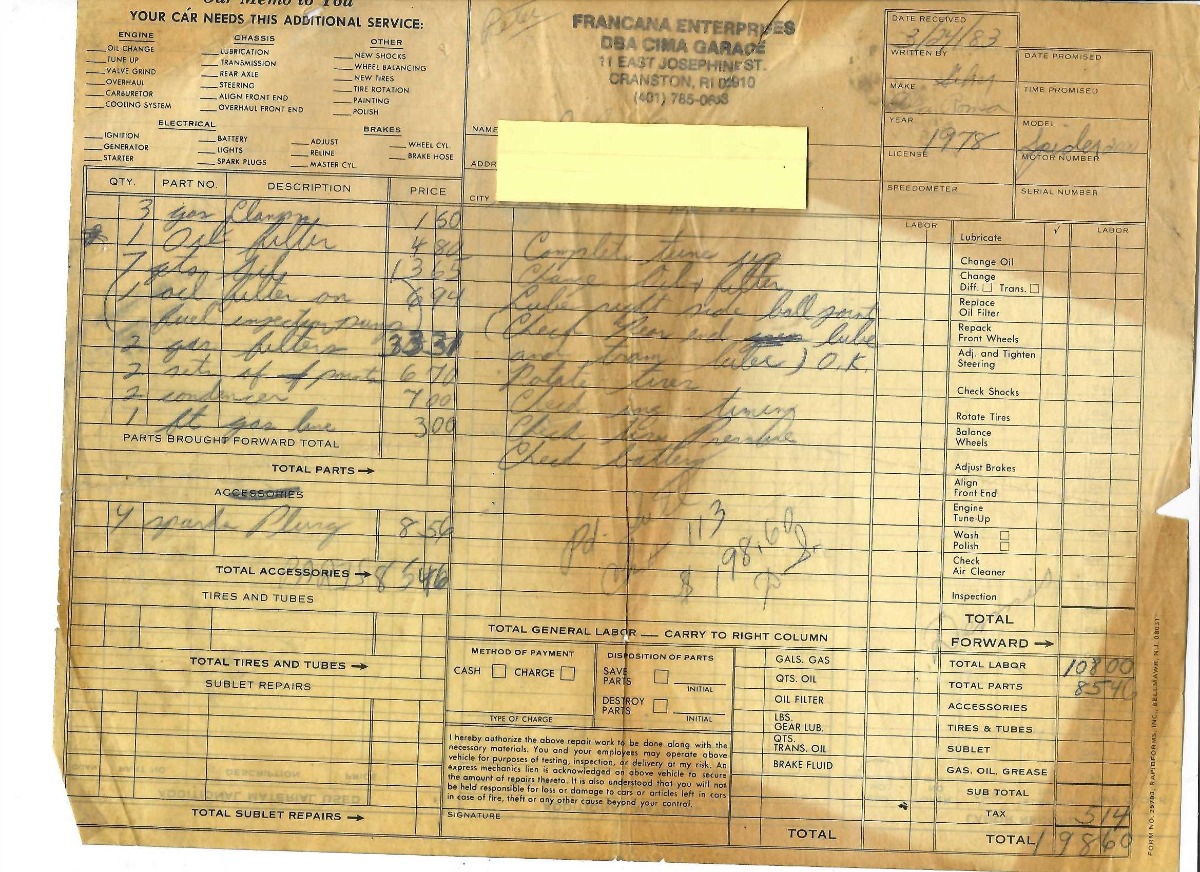 Our Memo to You
YOUR CAR NEEDS THIS ADDITIONAL SERVICE:
ENGINE
OIL CHANGE
TUNE UP
VALVE GRIND
OVERHAUL
CARBURETOR
COOLING SYSTEM
CHASSIS
LUBRICATION
TRANSMISSION
REAR AXLE
STEERING
ALIGN FRONT END
OVERHAUL FRONT END
OTHER
NEW SHOCKS
WHEEL BALANCING
NEW TIRES
TIRE ROTATION
PAINTING
POLISH
ELECTRICAL
IGNITION
GENERATOR
STARTER
BATTERY
LIGHTS
SPARK PLUGS
BRAKES
ADJUST
RELINE
MASTER CYL.
WHEEL CYL.
BRAKE HOSE
FRANCANA ENTERPRISES
DBA CIMA GARAGE
11 EAST JOSEPHINE ST.
CRANSTON, RI 02910
(401) 785-0698
NAME
ADDR
CITY
DATE RECEIVED 3/24/83
WRITTEN BY
DATE PROMISED
MAKE
TIME PROMISED
YEAR 1978
MODEL Spider
LICENSE
MOTOR NUMBER
SPEEDOMETER
SERIAL NUMBER
QTY. PART NO. DESCRIPTION PRICE
3 gas Clamps 1 50
1 Oil filter 4 80
7 qts 13 65
1 oil filter on 6 94
fuel injection pump
2 gas filters 33 31
2 sets of points 6 70
2 condenser 7 00
1 ft gas line 3 00
PARTS BROUGHT FORWARD TOTAL
TOTAL PARTS
ACCESSORIES
4 sparks Plugs 8 56
TOTAL ACCESSORIES 85 46
TIRES AND TUBES
TOTAL TIRES AND TUBES
SUBLET REPAIRS
TOTAL SUBLET REPAIRS
LABOR
Complet tune up
Change Oil + filter
Lube right side ball joint
(Check rear end lube
and tran lube) O.K.
Rotate tires
Check ing timing
Check tire Pressure
Check battery
pd.
113
$ 198.60
TOTAL GENERAL LABOR — CARRY TO RIGHT COLUMN
METHOD OF PAYMENT
CASH CHARGE
TYPE OF CHARGE
DISPOSITION OF PARTS
SAVE PARTS
INITIAL
DESTROY PARTS
INITIAL
I hereby authorize the above repair work to be done along with the
necessary materials. You and your employees may operate above
vehicle for purposes of testing, inspection, or delivery at my risk. An
express mechanics lien is acknowledged on above vehicle to secure
the amount of repairs thereto. It is also understood that you will not
be held responsible for loss or damage to cars or articles left in cars
in case of fire, theft or any other cause beyond your control.
SIGNATURE
GALS. GAS
QTS. OIL
OIL FILTER
LBS. GEAR LUB.
QTS. TRANS. OIL
BRAKE FLUID
TOTAL
✓ LABOR
Lubricate
Change Oil
Change
Diff. Trans.
Replace
Oil Filter
Repack
Front Wheels
Adj. and Tighten
Steering
Check Shocks
Rotate Tires
Balance
Wheels
Adjust Brakes
Align
Front End
Engine
Tune-Up
Wash
Polish
Check
Air Cleaner
Inspection
TOTAL
FORWARD
TOTAL LABOR 108 00
TOTAL PARTS 85 46
ACCESSORIES
TIRES & TUBES
SUBLET
GAS, OIL, GREASE
SUB TOTAL
TAX 5 14
TOTAL 198 60
FORM NO. 29783, RAPIDFORMS, INC., BELLMAWR, N.J. 08031